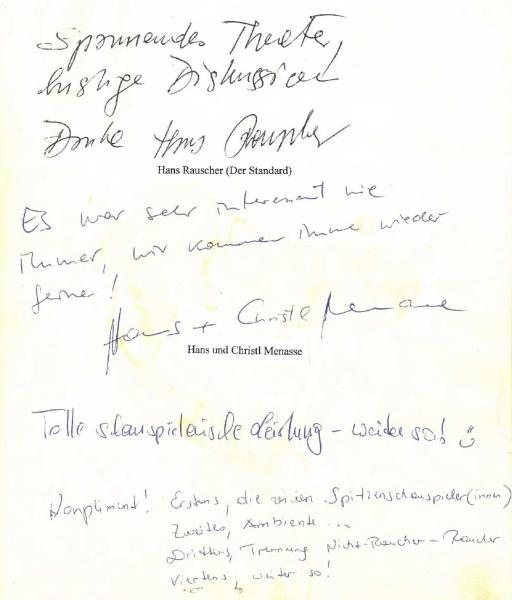 Spannendes Theater,
lustige Diskussion
Danke Hans Rauscher
Hans Rauscher (Der Standard)
Es war sehr interessant wie
immer, wir kommen immer wieder
gerne!
Hans + Christl Menasse
Hans und Christl Menasse
Tolle schauspielerische Leistung - weiter so! ☺
Kompliment! Erstens, die Spitzenschauspieler(innen)
Zweitens, Ambiente...
Drittens, Trennung Nicht-Raucher - Raucher
Viertens, weiter so!